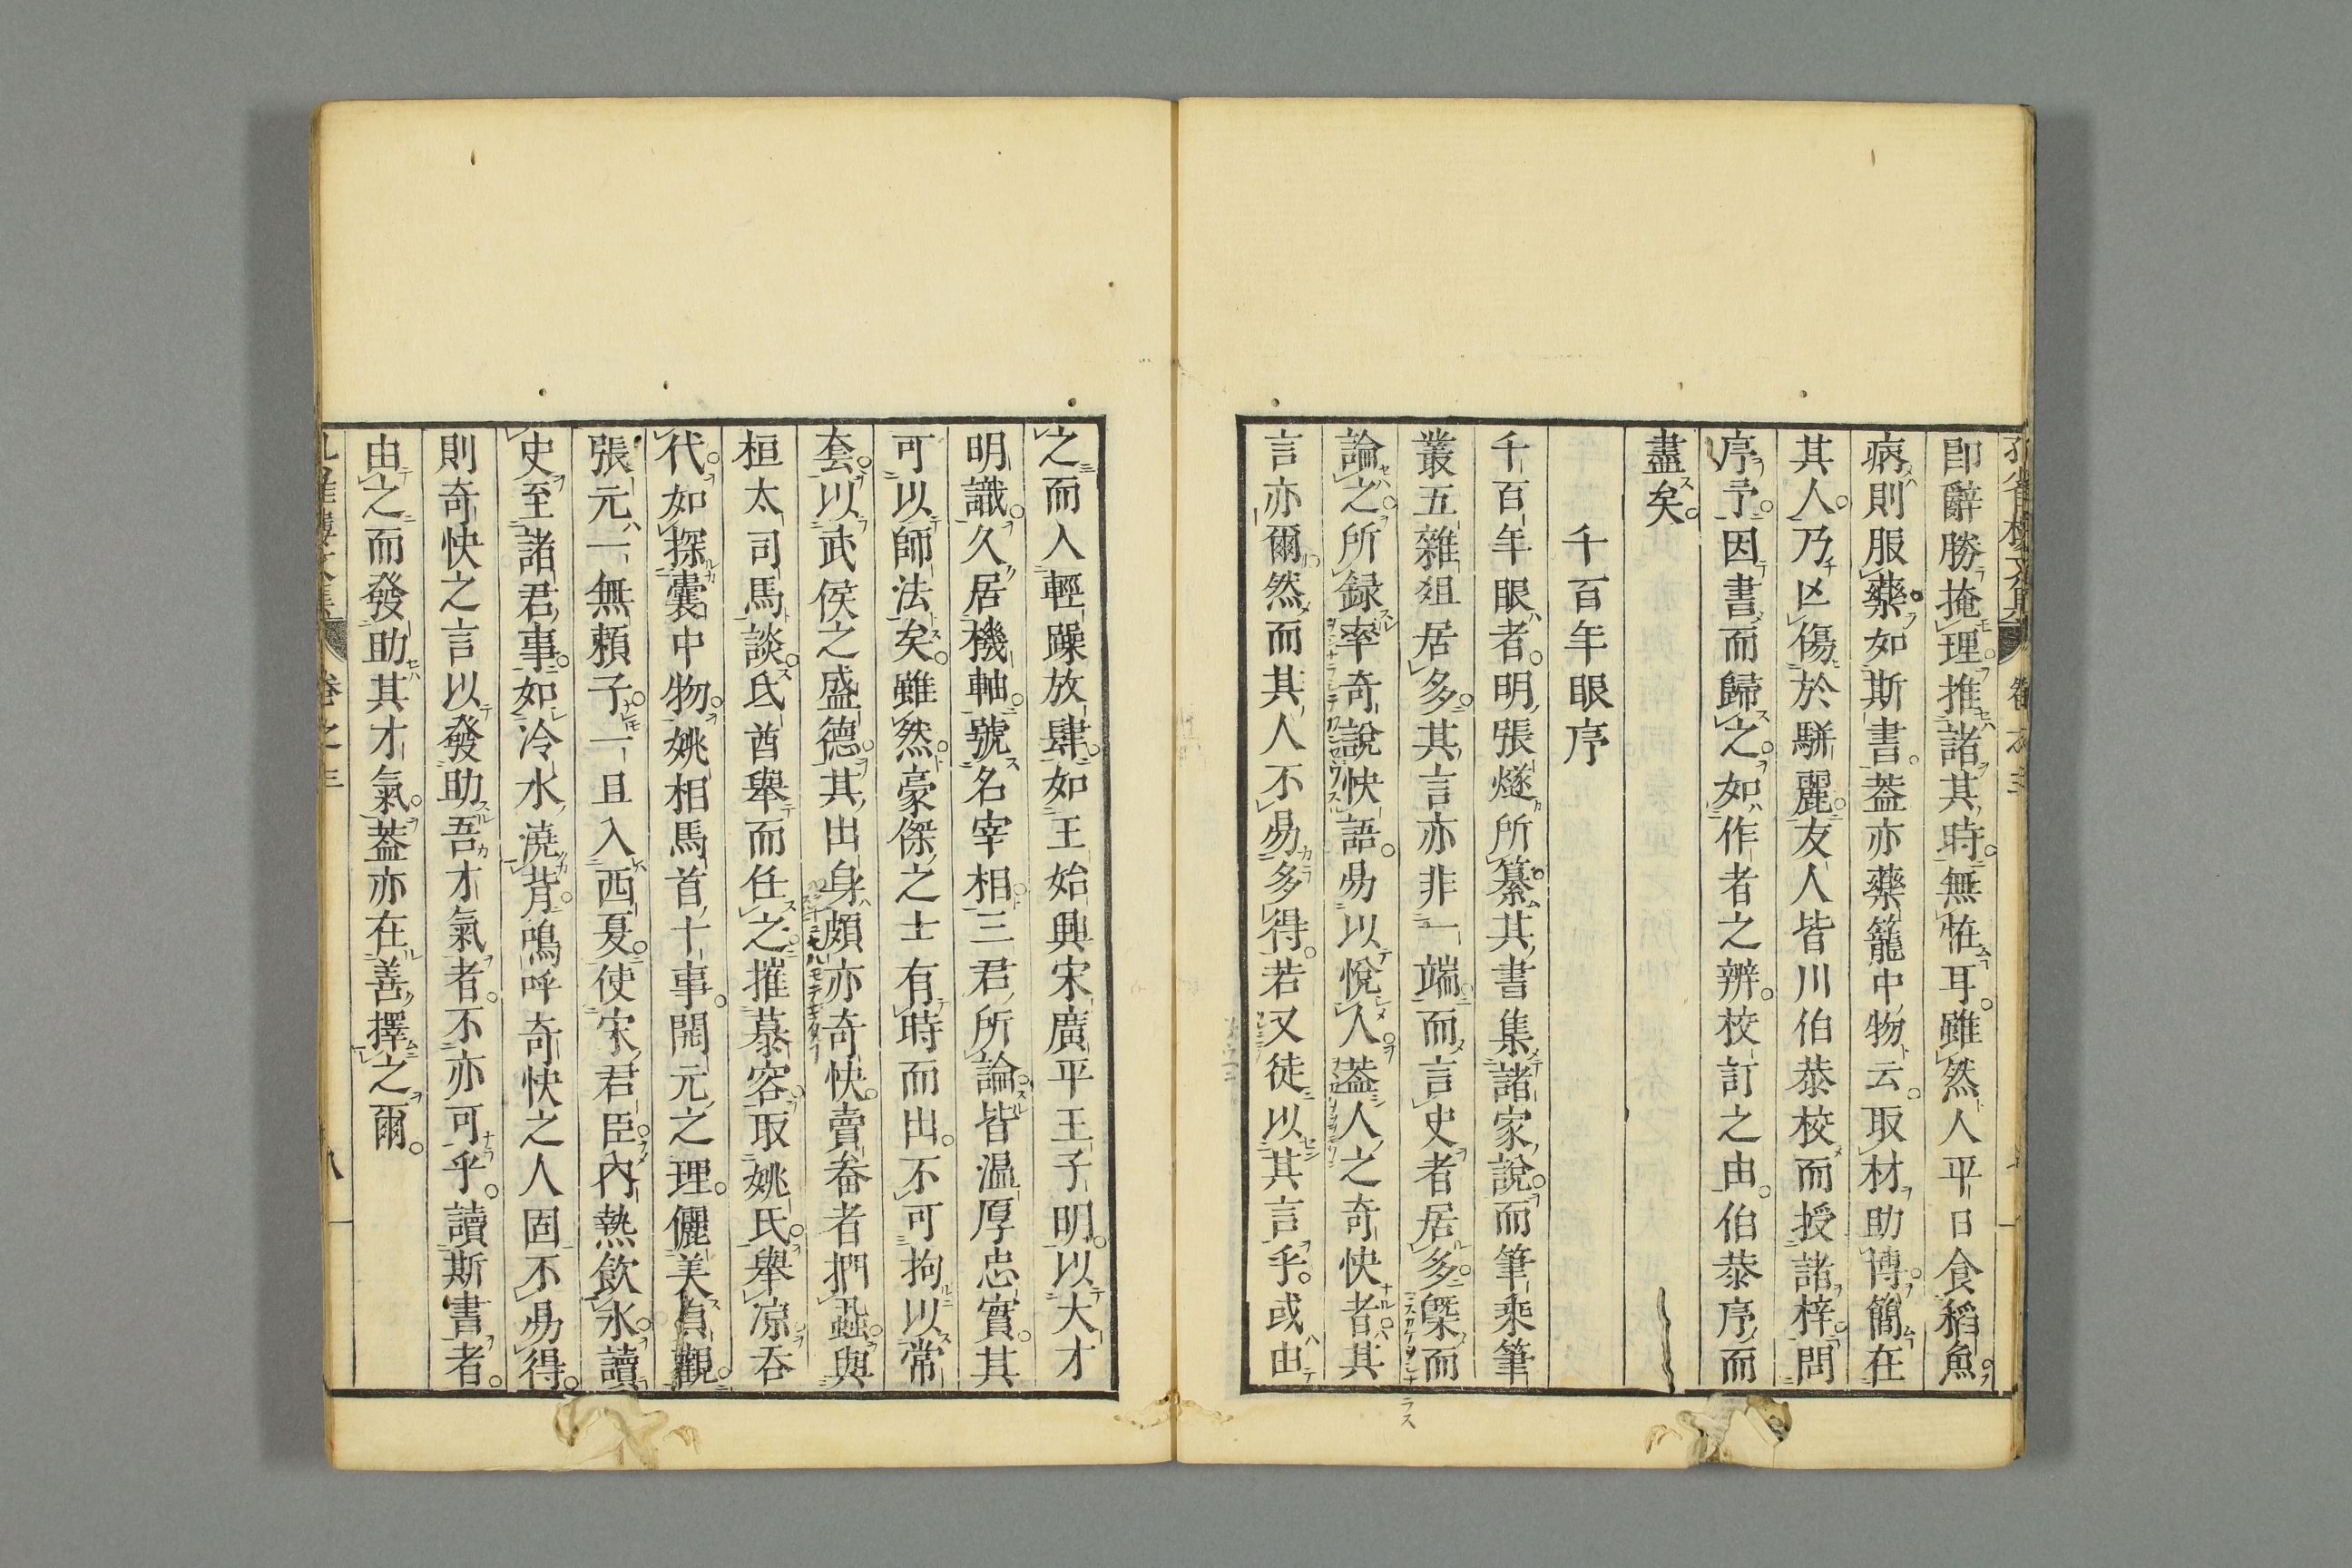 即辭勝掩理推諸其時無恠耳雖然人平日食稻魚
病則服藥如斯書蓋亦藥籠中物云取材助博簡在
其人乃㐫傷於駢麗友人皆川伯恭校而授諸梓問
序予因書而歸之如作者之辨校訂之由伯恭序而
盡矣
千百年眼序
千百年眼者明張燧所纂其書集諸家說而筆乘筆
叢五雜俎居多其言亦非一端而言史者居多槩而
論之所録率奇說快語易以悅人蓋人之奇快者其
言亦爾然而其人不易多得若又徒以其言乎或由
之而入輕躁放肆如王始興宋廣平王子明以大才
明識久居機軸號名宰相三君所論皆温厚忠實其
可以師法矣雖然豪傑之士有時而出不可拘以常
套以武侯之盛德其出身頗亦奇快賣畚者捫蝨與
桓太司馬談氐酋舉而任之摧慕容取姚氏舉凉吞
代如探囊中物姚相馬首十事開元之理儷美貞觀
張元一無頼子一且入西夏使宋君臣內熱飲氷讀
史至諸君事如冷水澆背嗚呼奇快之人固不易得
則奇快之言以發助吾才氣者不亦可乎讀斯書者
由之而發助其才氣蓋亦在善擇之爾
卷之三
八